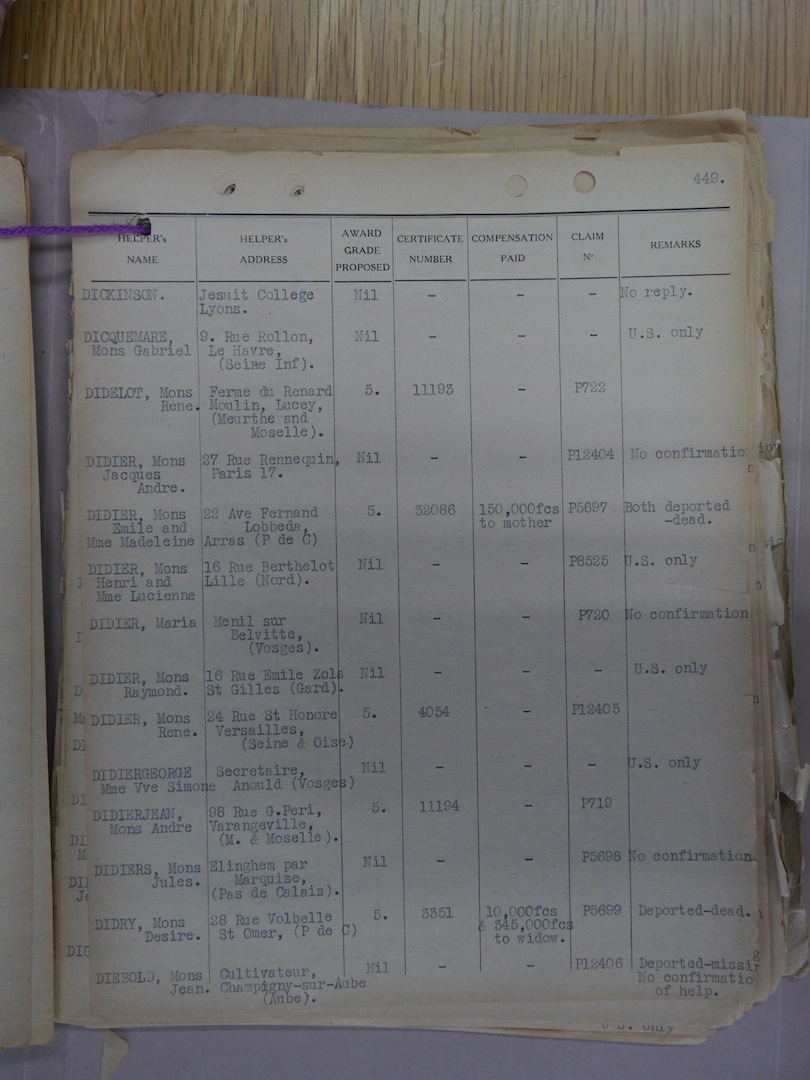 449.
HELPER's NAME HELPER's ADDRESS AWARD GRADE PROPOSED CERTIFICATE NUMBER COMPENSATION PAID CLAIM Nº REMARKS
DICKINSON. Jesuit College Nil - - - No reply.
Lyons.
DICQUEMARE, 9. Rue Rollon, Nil - - - U.S. only
Mons Gabriel Le Havre,
(Seine Inf).
DIDELOT, Mons Ferme du Renard 5. 11193 - P722
Rene. Moulin, Lucey,
(Meurthe and
Moselle).
DIDIER, Mons 27 Rue Rennequin, Nil - - P12404 No confirmatio
Jacques Paris 17.
Andre.
DIDIER, Mons 22 Ave Fernand 5. 32086 150,000fcs P5697 Both deported
Emile and Lobbeda, to mother -dead.
Mme Madeleine Arras (P de C)
DIDIER, Mons 16 Rue Berthelot Nil - - P8525 U.S. only
Henri and Lille (Nord).
Mme Lucienne
DIDIER, Maria Menil sur Nil - - P720 No confirmation
Belvitte,
(Vosges).
DIDIER, Mons 16 Rue Emile Zola Nil - - - U.S. only
Raymond. St Gilles (Gard).
DIDIER, Mons 24 Rue St Honore 5. 4034 - P12405
Rene. Versailles,
(Seine & Oise)
DIDIERGEORGE Secretaire, Nil - - - U.S. only
Mme Vve Simone Anould (Vosges)
DIDIERJEAN, 98 Rue G.Peri, 5. 11194 - P719
Mons Andre Varangeville,
(M. & Moselle).
DIDIERS, Mons Elinghem par Nil - - P5698 No confirmation
Jules. Marquise,
(Pas de Calais).
DIDRY, Mons 28 Rue Volbelle 5. 3351 10,000fcs P5699 Deported-dead.
Desire. St Omer, (P de C) & 345,000fcs
to widow.
DIEBOLD, Mons Cultivateur, Nil - - P12406 Deported-missi
Jean. Champigny-sur-Aube No confirmatio
(Aube). of help.
U.S. only